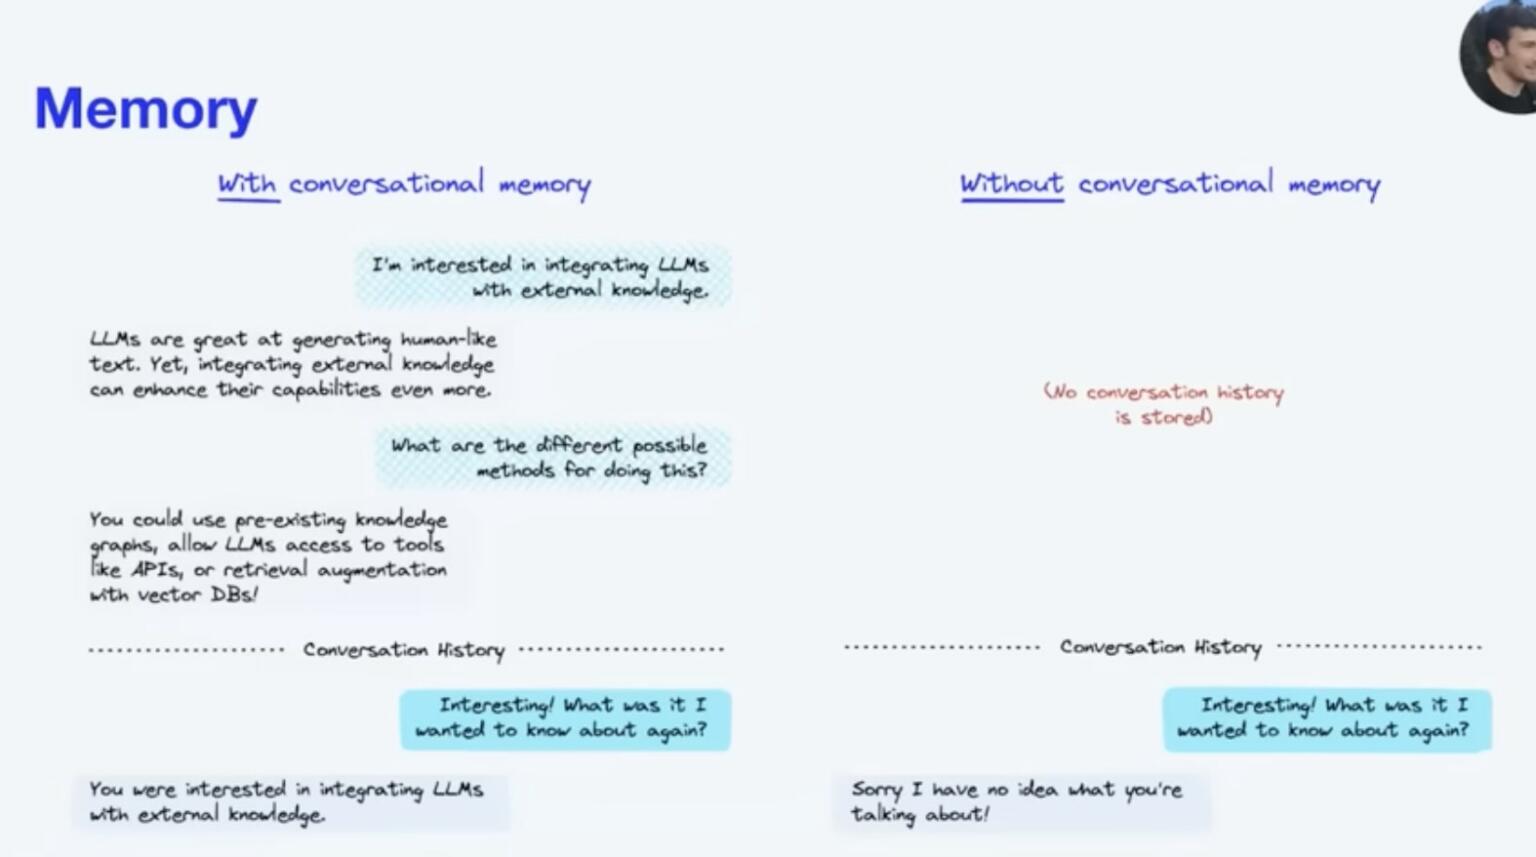 Memory
With conversational memory
I'm interested in integrating LLMs
with external knowledge.
LLMs are great at generating human-like
text. Yet, integrating external knowledge
can enhance their capabilities even more.
What are the different possible
methods for doing this?
You could use pre-existing knowledge
graphs, allow LLMs access to tools
like APIs, or retrieval augmentation
with vector DBs!
Conversation History
Interesting! What was it I
wanted to know about again?
You were interested in integrating LLMs
with external knowledge.
Without conversational memory
(No conversation history
is stored)
Conversation History
Interesting! What was it I
wanted to know about again?
Sorry I have no idea what you're
talking about!